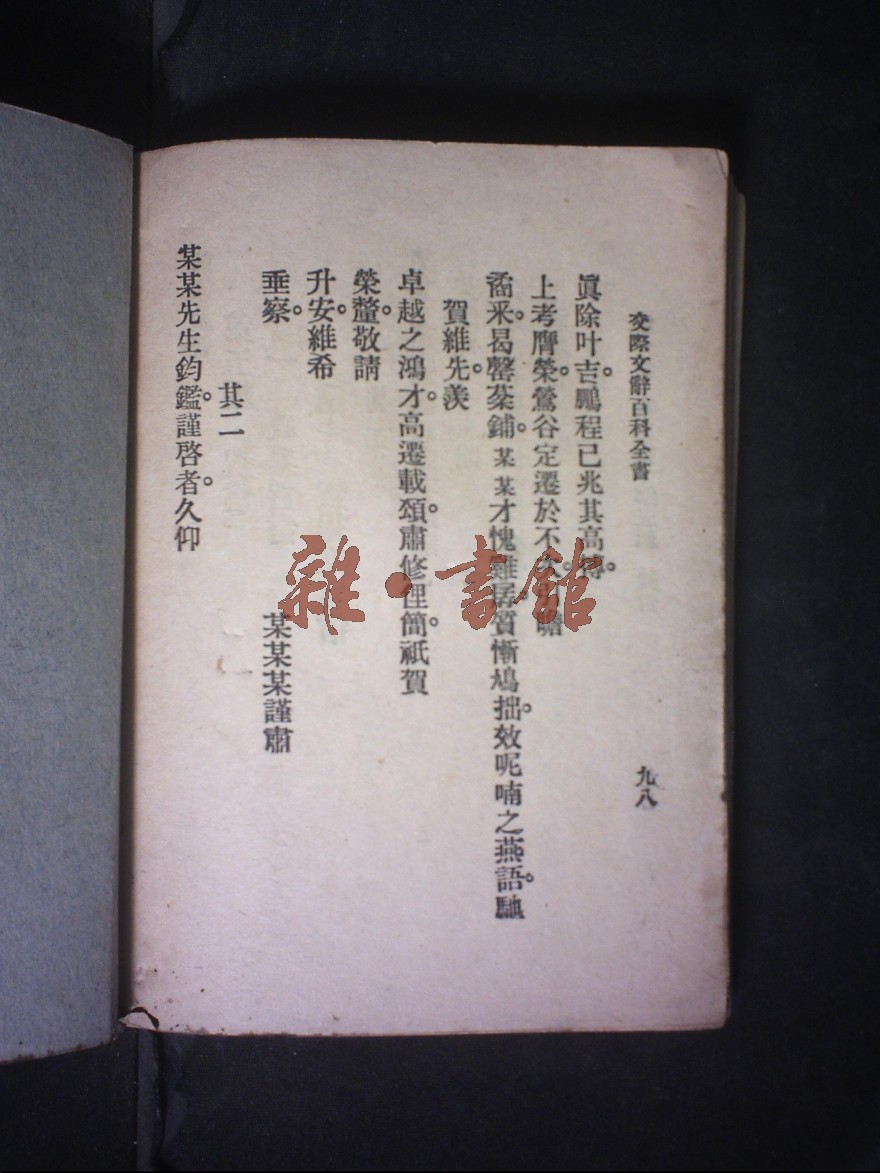 交際文辭百科全書
九八
眞除叶吉。鵬程已兆其高摶。
上考膺榮。鶯谷定遷於不 瞻
矞釆。曷罄葵鋪。某某才愧雞 質慚鳩拙。效呢喃之燕語。馳
賀維先。羨
卓越之鴻才。高遷載頌。肅修俚簡。祇賀
榮釐。敬請
升安。維希
垂察。 某某某謹肅
其二
某某先生鈞鑑。謹啓者。久仰
雜·書館